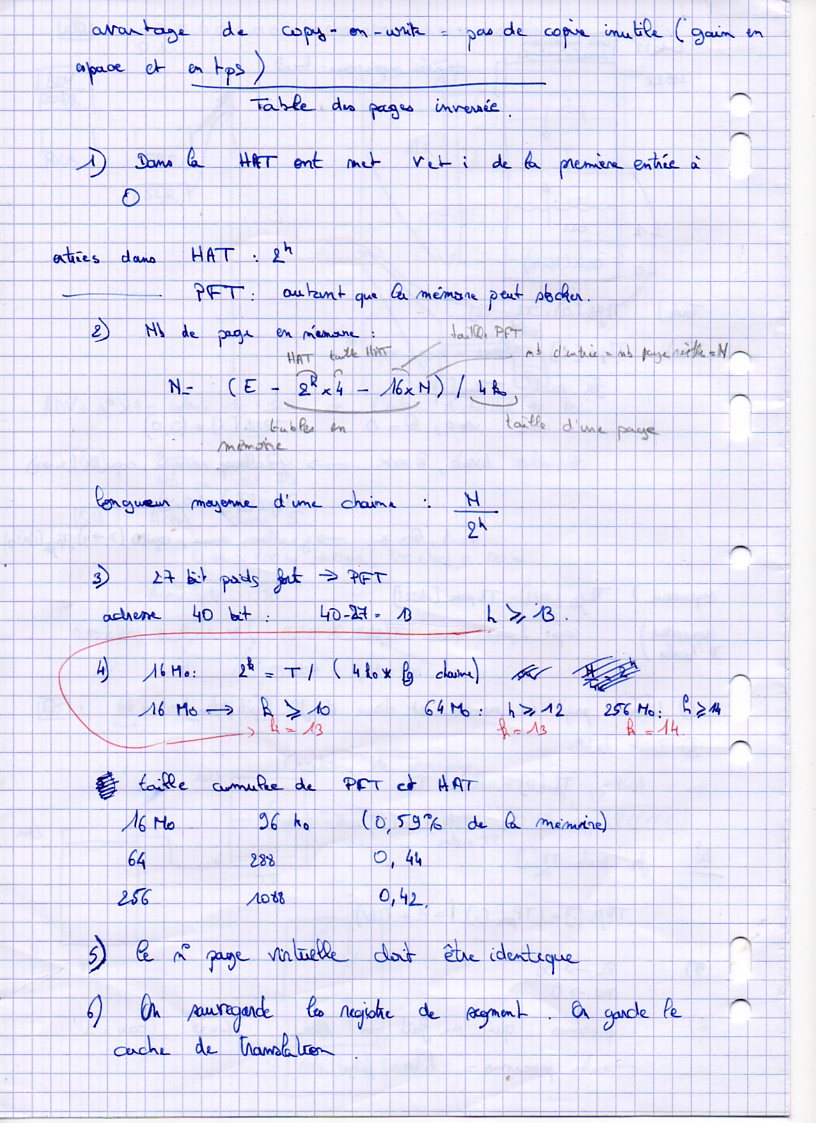 avantage de copy-on-write = pas de copie inutile (gain en
espace et en tps)
Table des pages inversée.
1) Dans la HAT ont met v et i de la première entrée à
0
entrées dans HAT : 2^h
PFT : autant que la mémoire peut stocker.
2) Nb de page en mémoire :
taille PFT
HAT taille HAT
nb d'entrée = nb page réelle = N
N = (E - 2^h x 4 - 16 x N) / 4ko
tables en
mémoire
taille d'une page
longueur moyenne d'une chaîne : N / 2^h
3) 27 bit poids fort → PFT
adresse 40 bit : 40-27 = 13 h ≥ 13.
4) 16 Mo : 2^h = T / (4ko * lg chaine)
16 Mo → h ≥ 10 64 Mo : h ≥ 12 256 Mo : h ≥ 14
h = 13 h = 13 h = 14
taille cumulée de PFT et HAT
16 Mo 96 ko (0,59% de la mémoire)
64 288 0,44
256 1088 0,42.
5) le n° page virtuelle doit être identique
6) On sauvegarde les registre de segment. On garde le
cache de translation.